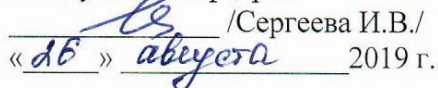 /Сергеева И.В./
«26» августа 2019 г.